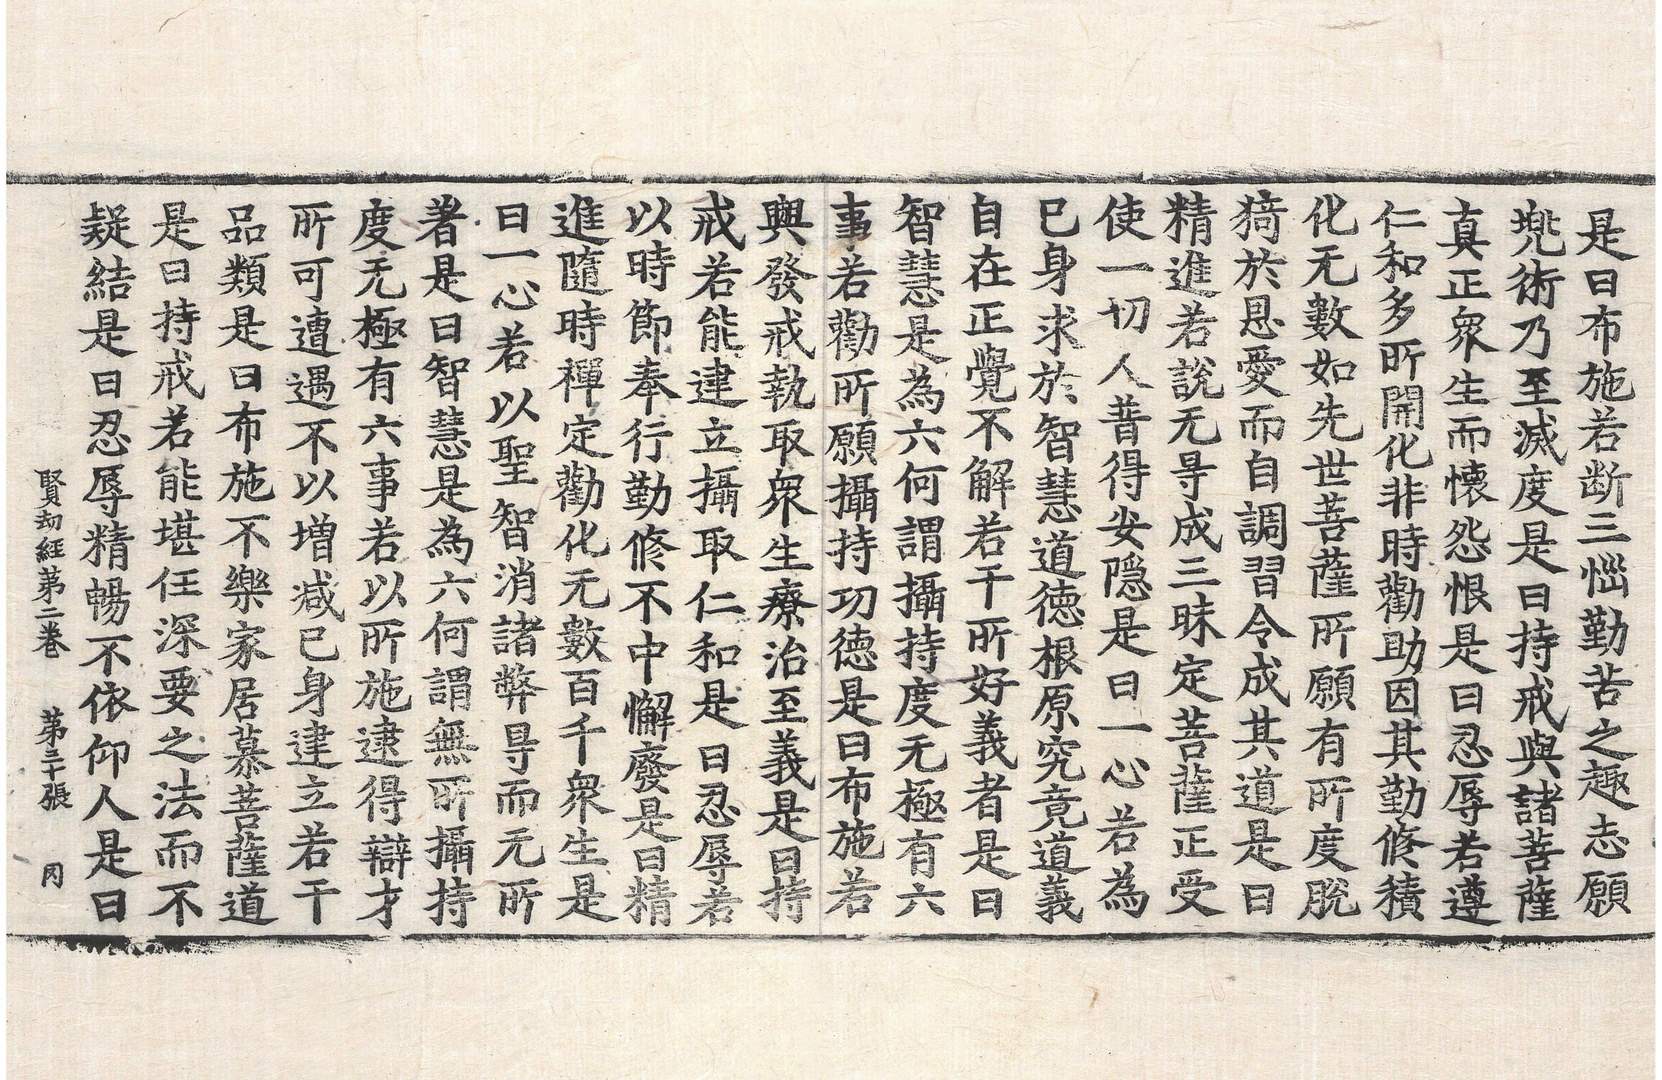 是曰布施若断三惱勤苦之趣志願
兠術乃至滅度是曰持戒與諸菩薩
真正衆生而懷怨恨是曰忍辱若遵
仁和多所開化非時勸助因其勤修積
化无數如先世菩薩所願有所度脫
猗於恩愛而自調習令成其道是曰
精進若說无㝵成三昧定菩薩正受
使一切人普得安隱是曰一心若為
已身求於智慧道德根原究竟道義
自在正覺不解若干所好義者是曰
智慧是為六何謂攝持度无極有六
事若勸所願攝持功德是曰布施若
興發戒執取衆生療治至義是曰持
戒若能建立攝取仁和是曰忍辱若
以時節奉行勤修不中懈廢是曰精
進隨時禪定勸化无數百千衆生是
曰一心若以聖智消諸弊㝵而无所
著是曰智慧是為六何謂無所攝持
度无極有六事若以所施逮得辯才
所可遭遇不以増减已身建立若干
品類是曰布施不樂家居慕菩薩道
是曰持戒若能堪任深要之法而不
疑結是曰忍辱精暢不依仰人是曰
賢劫經第二卷 第三十張 罔